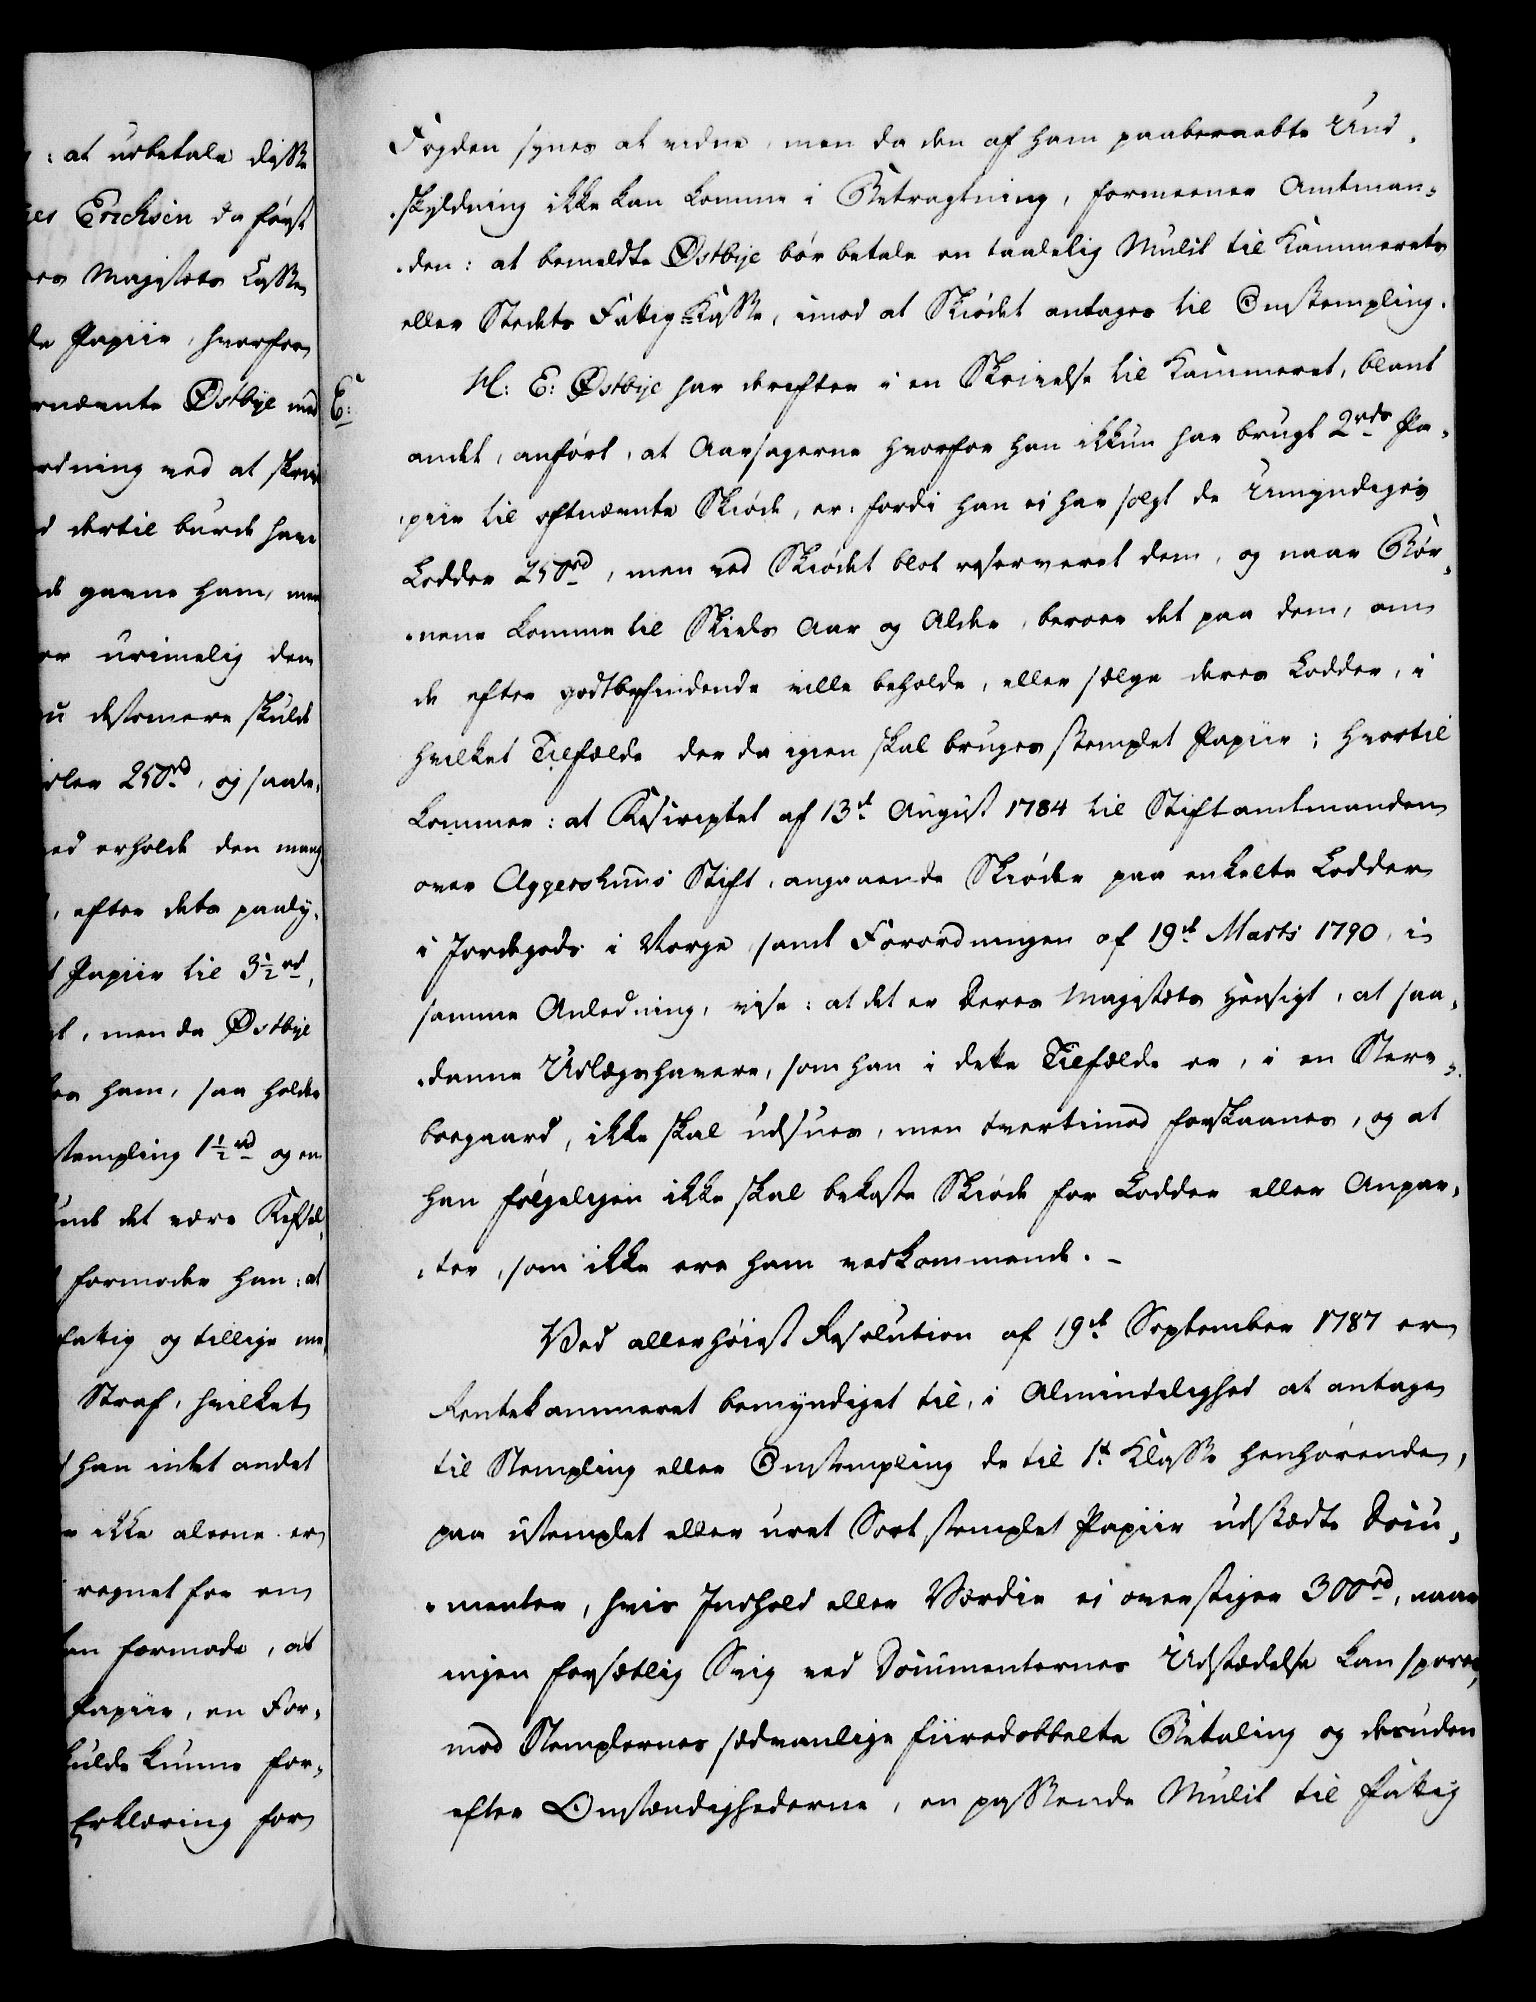 : at udbetale disse
Erichsen da först
Majestets Casse
Papiir, hvorfor
Østbye med
ordning ved at skriv
dertil burde have
gavne ham, men
urimelig dem
destomere skulde
250rd, og saale,
erholdt den mang
, efter dets paaly,
Papiir til 3½ rd,
, men da Østbye
ham, saa holder
stempling 1½ rd og en
det være
formoder han: at
fattig og tillige me
Straf, hvilket
han intet andet
ikke aleene er
regnet for en
formode, at
Papiir, en For,
skulde kunne for,
Erklæring for
Fogden synes at vidne, men da den af ham paaberaabte Und,
,skyldning ikke kan komme i Betragtning, formeener Amtman,
,den: at bemeldte Østbye bör betale en taalelig Mulct til Kammerets
eller Stedets Fattig-Kasse, imod at Skiödet antages til Omstempling.
E:
N: E: Østbye har derefter i en Skrivelse til Kammeret, blant
andet, anfört, at Aarsagerne hvorfor han ikkun har brugt 2rds Pa,
,piir til oftnævnte Skiöde, er: fordi han ei har solgt de Umyndiges
Lodder 250rd, men ved Skiödet blot reserveret dem, og naar Bör,
,nene komme til Skiels Aar og Alder, beroer det paa dem, om
de efter godtbefindende ville beholde, eller sælge deres Lodder, i
hvilket Tilfælde der da igien skal bruges stemplet Papiir; hvortil
kommer: at Rescriptet af 13de August 1784 til Stiftamtmanden
over Aggershuus Stift, angaaende Skiöder paa enkelte Lodder
i Jordegods i Norge, samt Forordningen af 19de Marts 1790, i
samme Anledning, vise: at det er Deres Majestæts Hensigt, at saa,
,danne Udlægshavere, som han i dette Tilfælde er, i en Sterv,
boegaard, ikke skal udsues, men tvertimod forskaanes, og at
han fölgeligen ikke skal bekoste Skiöde for Lodder eller Anpar,
,ter, som ikke ere ham vedkommende. –
Ved allerhöiest Resolution af 19de September 1787 er
Rentekammeret bemyndiget til, i Almindelighed at antage
til Stempling eller Omstempling de til 1te Klasse henhörende,
paa ustemplet eller uret Sort stemplet Papiir udstædte Docu,
,menter, hvis Indhold eller Værdie ei overstiger 300rd, naar
ingen forsætlig Svig ved Documenternes Udstædelse kan spores,
mod Stemplernes sædvanlige fiiredobbelte Betaling og desuden
efter Omstændighederne, en passende Mulct til Fattig